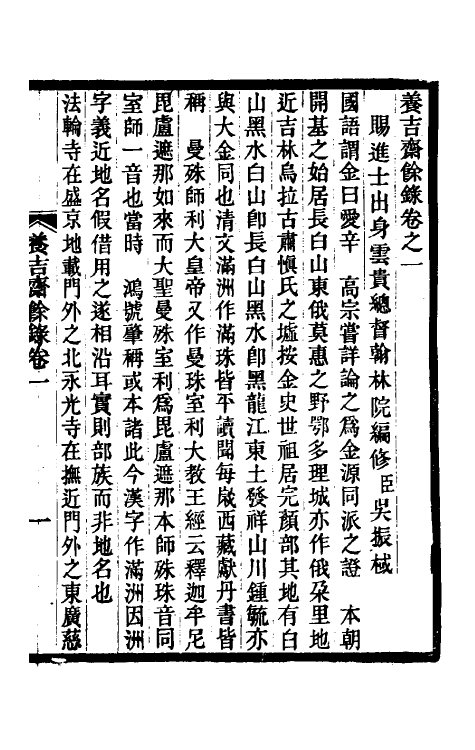 養吉齋餘錄卷之一
賜進士出身雲貴總督翰林院編修臣吳振棫
國語謂金曰愛辛　高宗嘗詳論之為金源同派之證　本朝
開基之始居長白山東俄莫惠之野鄂多理城亦作俄朶里地
近吉林烏拉古肅愼氏之墟按金史世祖居完顏部其地有白
山黑水白山卽長白山黑水卽黑龍江東土發祥山川鍾毓亦
與大金同也清文滿洲作滿珠皆平讀聞每歲西藏獻丹書皆
稱　曼殊師利大皇帝又作曼珠室利大教王經云釋迦牟尼
毘盧遮那如來而大聖曼殊室利爲毘盧遮那本師殊珠音同
室師一音也當時　鴻號肇稱或本諸此今漢字作滿洲因洲
字義近地名假借用之遂相沿耳實則部族而非地名也
法輪寺在盛京地載門外之北永光寺在撫近門外之東廣慈
養吉齋餘錄卷一
一